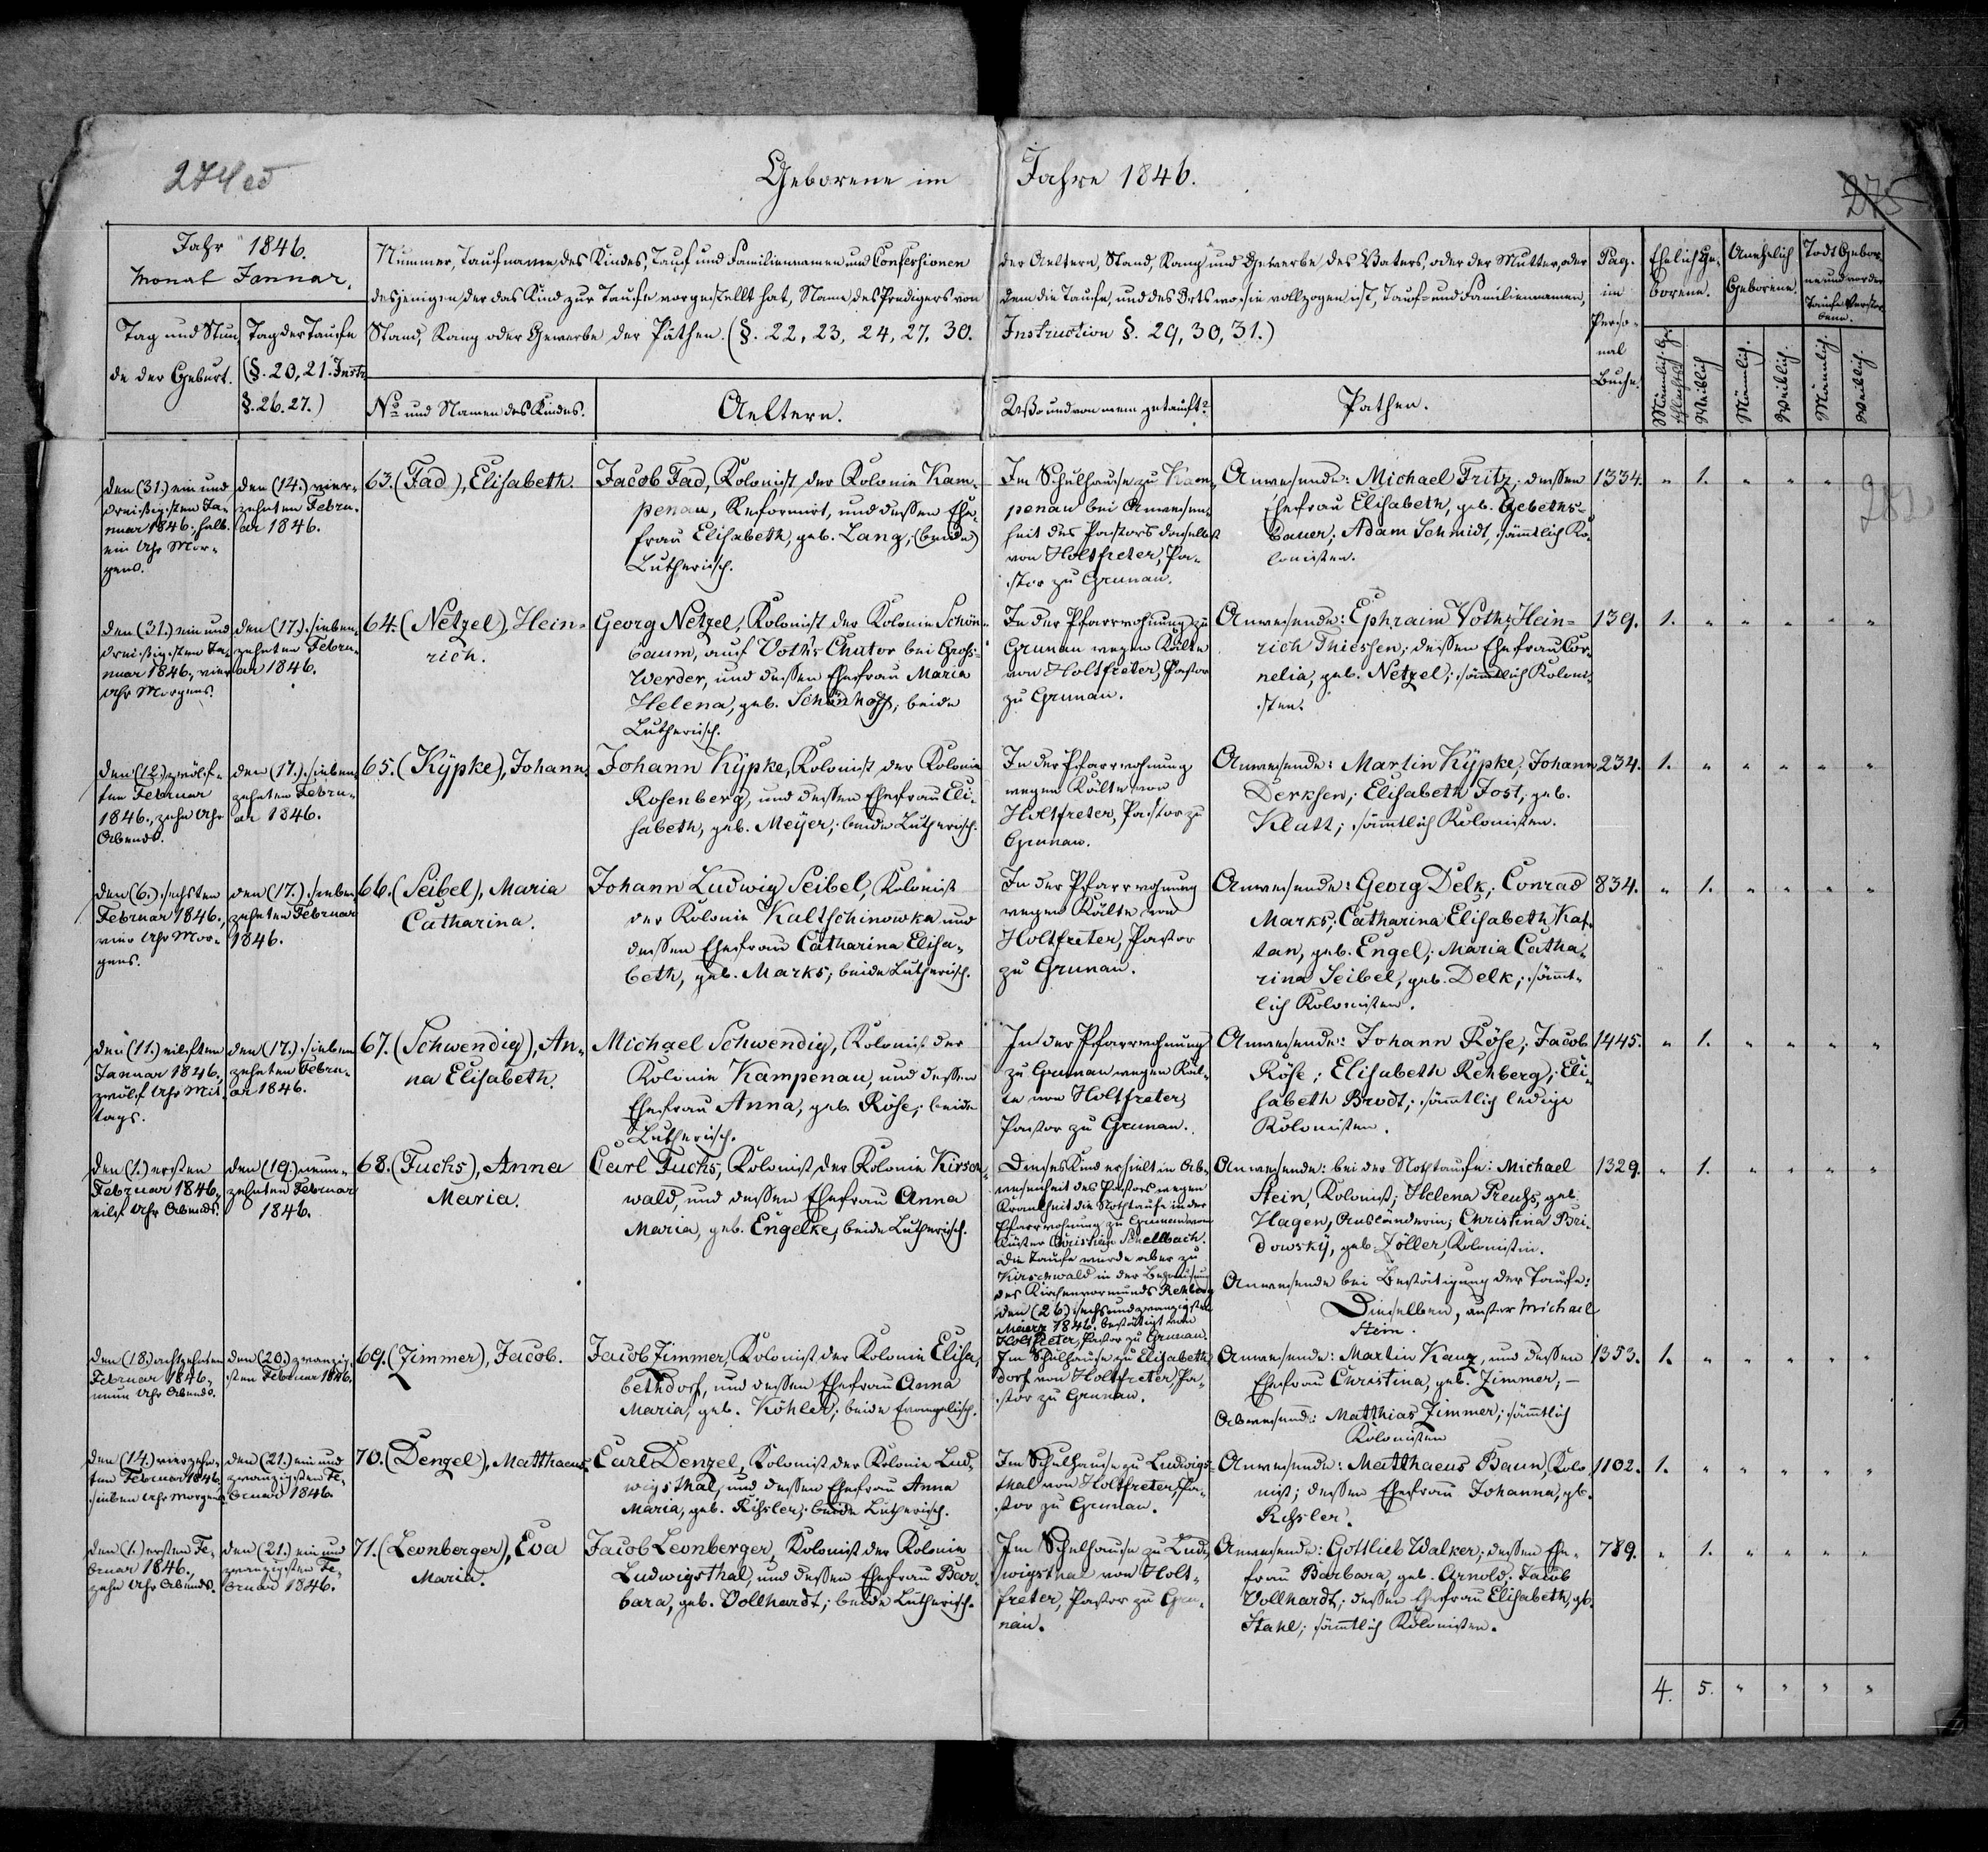 274
275
Geborene im Jahre 1846.
Jahr 1846.
Monat Januar.
Tag und Stun
de der Geburt.
Tag der Taufe
(§. 20, 21. Instr.
§. 26. 27.)
Nummer, Taufname des Kindes, Tauf und Familiennamen und Confessionen
desjenigen der das Kind zur Taufe vorgestellt hat, Name des Predigers von
Stand, Rang oder Gewerbe der Pathen. (§. 22, 23, 24, 27, 30.
No und Namen des Kindes.
Aeltern.
der Aeltern, Stand, Rang und Gewerbe des Vaters, oder der Mutter, oder
dem die Taufe, und des Orts wo sie vollzogen ist, Tauf- und Familiennamen,
Instruction §. 29, 30, 31.)
Wo und von wem getauft?
Pathen.
Pag.
im
Perso-
nal
Buche.
Ehelich Ge-
borene.
Unehelich
Geborene.
Todt Gebor-
ne und vor der
Taufe Verstor-
bene.
Männlich. Ge-
schlechts
Weiblich
Männlich.
Weiblich.
Männlich.
Weiblich.
den (31.) ein und
dreißigsten Ja-
nuar 1846, halb
ein Uhr Mor-
gens.
den (14.) vier-
zehnten Febru-
ar 1846.
63. (Fad), Elisabeth.
Jacob Fad, Kolonist der Kolonie Kam-
penau, Reformirt, und dessen Ehe-
frau Elisabeth, geb. Lang, (beide)
Lutherisch.
Im Schulhause zu Kam-
penau bei Anwesen-
heit des Pastors daselbst
von Holtfreter, Pa-
stor zu Grunau.
Anwesende: Michael Fritz, dessen
Ehefrau Elisabeth, geb. Gebeths-
bauer; Adam Schmidt, sämtlich Ko-
lonisten.
1334. " 1. " " "
den (31.) ein und
dreißigsten Ja-
nuar 1846, vier
Uhr Morgens.
den (17.) sieben-
zehnten Febru-
ar 1846.
64. (Netzel), Hein-
rich.
Georg Netzel, Kolonist der Kolonie Schön-
baum, auf Voth's Chutor bei Gross-
Werder, und dessen Ehefrau Maria
Helena, geb. Schönhoff; beide
Lutherisch.
In der Pfarrwohnung zu
Grunau wegen Kälte
von Holtfreter, Pastor
zu Grunau.
Anwesende: Ephraim Voth; Hein-
rich Thiessen; dessen Ehefrau Cor-
nelia, geb. Netzel; sämtlich Koloni-
sten.
139. 1. " " " " "
den (12.) zwölf-
ten Februar
1846., zehn Uhr
Abends.
den (17.) sieben-
zehnten Febru-
ar 1846.
65. (Kÿpke), Johann.
Johann Kÿpke, Kolonist der Kolonie
Rosenberg, und dessen Ehefrau Eli-
sabeth, geb. Meÿer; beide Lutherisch.
In der Pfarrwohnung
wegen Kälte von
Holtfreter, Pastor zu
Grunau.
Anwesende: Martin Kÿpke; Johann
Derksen; Elisabeth Jost, geb.
Klatt; sämtlich Kolonisten.
234. 1. " " " " "
den (6.) sechsten
Februar 1846.,
vier Uhr Mor-
gens.
den (17.) sieben-
zehnten Februar
1846.
66. (Seibel), Maria
Catharina.
Johann Ludwig Seibel, Kolonist
der Kolonie Kaltschinowka und
dessen Ehefrau Catharina Elisa-
beth, geb. Marks; beide Lutherisch.
In der Pfarrwohnung
wegen Kälte von
Holtfreter, Pastor
zu Grunau.
Anwesende: Georg Delk; Conrad
Marks; Catharina Elisabeth Kaf-
tan, geb. Engel; Maria Catha-
rina Seibel, geb. Delk; sämt-
lich Kolonisten.
834. " 1. " " " "
den (11.) eilften
Januar 1846.,
zwölf Uhr Mit-
tags.
den (17.) sieben
zehnten Febru-
ar 1846.
67. (Schwendig), An-
na Elisabeth.
Michael Schwendig, Kolonist der
Kolonie Kampenau, und dessen
Ehefrau Anna, geb. Röse; beide
Lutherisch.
In der Pfarrwohnung
zu Grunau wegen Käl-
te von Holtfreter,
Pastor zu Grunau.
Anwesende: Johann Röse; Jacob
Röse; Elisabeth Rehberg; Eli-
sabeth Brodt; sämmtlich ledige
Kolonisten.
1445. " 1. " " " "
den (1.) ersten
Februar 1846.,
eilf Uhr Abends.
den (19.) neun-
zehnten Februar
1846.
68. (Fuchs), Anna
Maria.
Carl Fuchs, Kolonist der Kolonie Kirsch-
wald und dessen Ehefrau Anna
Maria, geb. Engelke; beide Lutherisch.
Dieses Kind erhielt in Ab-
wesenheit des Pastors wegen
Krankheit die Nothtaufe in der
Pfarrwohnung zu Grunau vom
Küster Christian Schellbach.
Die Taufe wurde aber zu
Kirschwald in der Behausung
des Kirchenvormunds Rehberg
den (26.) sechsundzwanzigsten
Maerz 1846. bestätigt von
Holtfreter, Pastor zu Grunau.
Anwesende: bei der Nothtaufe: Michael
Stein, Kolonist; Helena Preuss, geb.
Hagen, Ausländerin; Christina Bri-
dowskÿ, geb. Zöller, Kolonistin.
Anwesende bei Bestätigung der Taufe:
Dieselben, außer Michael
Stein.
1329. " 1. " " " "
den (18.) achtzehnten
Februar 1846.,
neun Uhr Abends.
den (20.) zwanzig-
sten Februar 1846.
69. (Zimmer), Jacob.
Jacob Zimmer, Kolonist der Kolonie Elisa-
bethdorf, und dessen Ehefrau Anna
Maria, geb. Köhler; beide Evangelisch.
Im Schulhause zu Elisabeth-
dorf von Holtfreter, Pa-
stor zu Grunau.
Anwesende: Martin Kanz, und dessen
Ehefrau Christina, geb. Zimmer; —
Abwesend: Matthias Zimmer; sämmtlich
Kolonisten
1353. 1. " " " " "
den (14.) vierzehn-
ten Februar 1846.
sieben Uhr Morgens
den (21.) ein und
zwanzigsten Fe-
bruar 1846.
70. (Denzel), Matthaeus.
Carl Denzel, Kolonist der Kolonie Lud-
wigsthal, und dessen Ehefrau Anna
Maria, geb. Kissler; beide Lutherisch.
Im Schulhause zu Ludwigs-
thal von Holtfreter, Pa-
stor zu Grunau.
Anwesende: Matthaeus Baun, Kolo-
nist; dessen Ehefrau Johanna, gb.
Ressler.
1102. 1. " " " " "
den (1.) ersten Fe-
bruar 1846.,
zehn Uhr Abends.
den (21.) ein und
zwanzigsten Fe-
bruar 1846.
71. (Leonberger), Eva
Maria.
Jacob Leonberger, Kolonist der Kolonie
Ludwigsthal, und dessen Ehefrau Bar-
bara, geb. Vollhardt; beide Lutherisch.
Im Schulhause zu Lud-
wigsthal von Holt-
freter, Pastor zu Gru-
nau.
Anwesende: Gottlieb Walker; dessen Ehe-
frau Barbara, geb. Arnold; Jacob
Vollhardt; dessen Ehefrau Elisabeth, gb.
Stahl; sämtlich Kolonisten.
789. " 1. " " " "
4. 5. " " " "